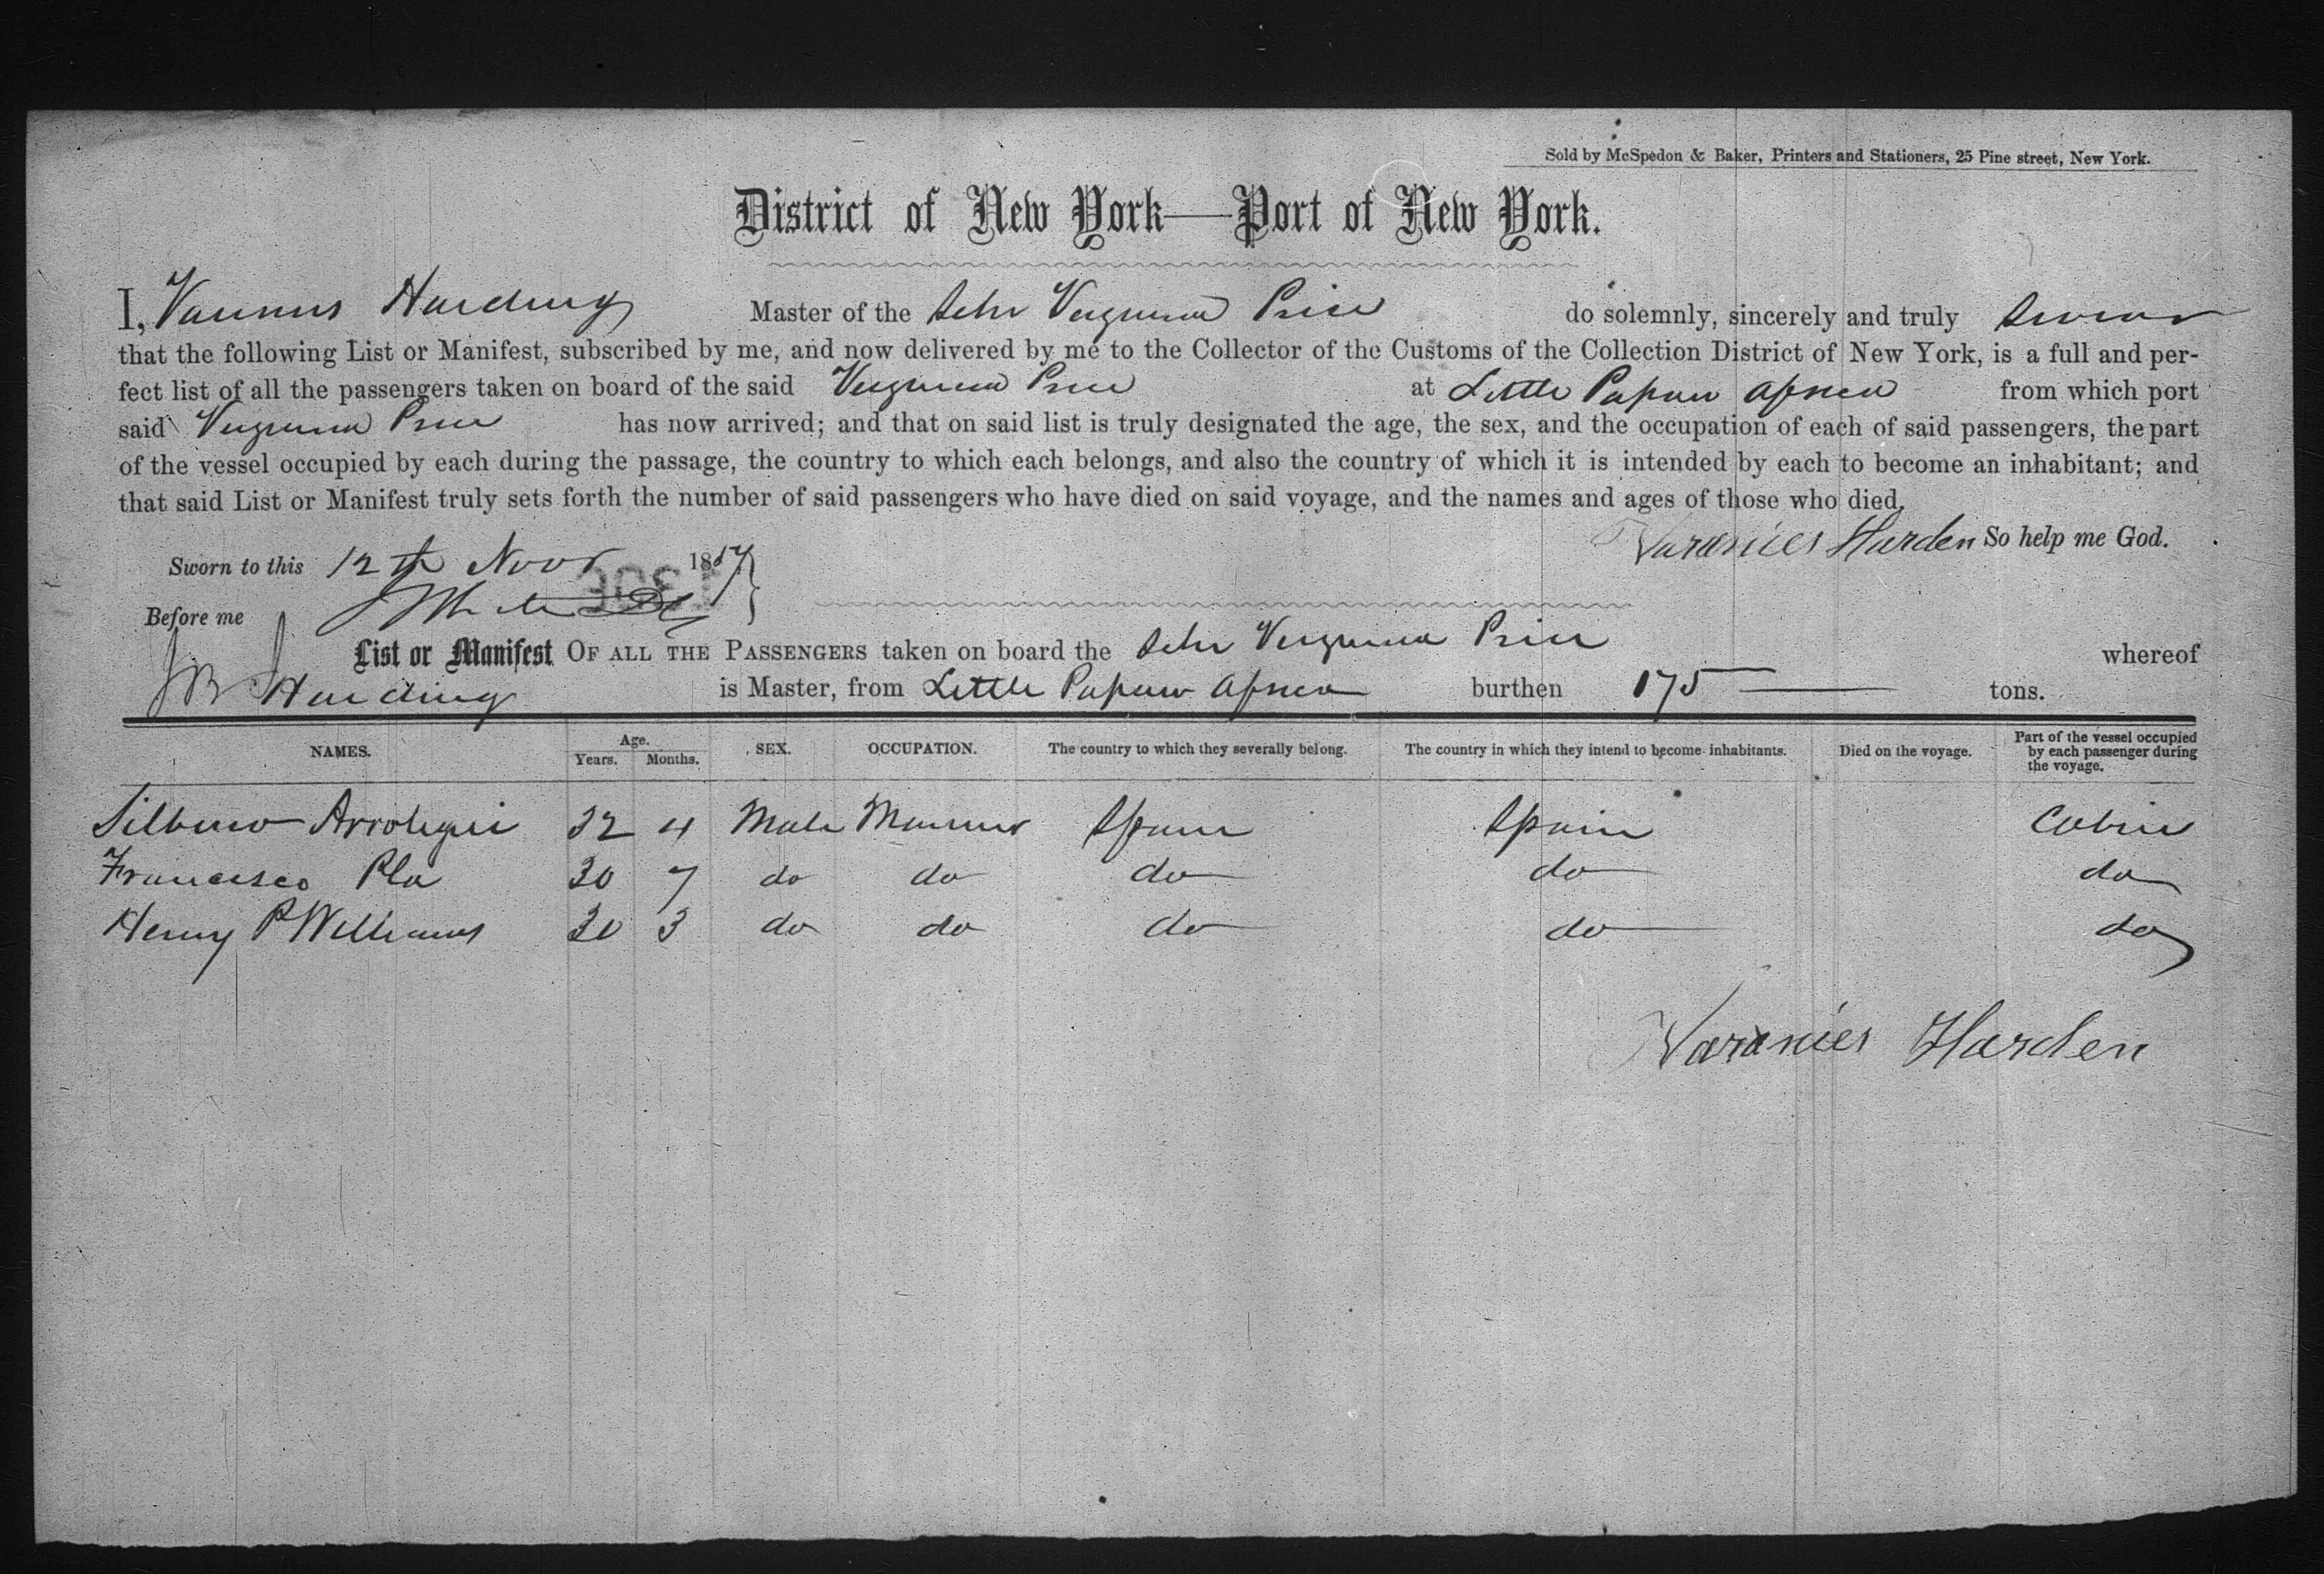 Sold by McSpedon & Baker, Printers and Stationers, 25 Pine street, New York.
District of New York—Port of New York.
I, Harding Master of the Schr Virginia Price do solemnly, sincerely and truly swear
that the following List or Manifest, subscribed by me, and now delivered by me to the Collector of the Customs of the Collection District of New York, is a full and per-
fect list of all the passengers taken on board of the said Virginia Price at Little Papaw Africa from which port
said Virginia Price has now arrived; and that on said list is truly designated the age, the sex, and the occupation of each of said passengers, the part
of the vessel occupied by each during the passage, the country to which each belongs, and also the country of which it is intended by each to become an inhabitant; and
that said List or Manifest truly sets forth the number of said passengers who have died on said voyage, and the names and ages of those who died.
Varanies Harden So help me God.
Sworn to this 12th Novr 1857
Before me
List or Manifest OF ALL THE PASSENGERS taken on board the Schr Virginia Price whereof
Harding is Master, from Little Papaw Africa burthen 175 tons.
NAMES. Age. Years. Months. SEX. OCCUPATION. The country to which they severally belong. The country in which they intend to become inhabitants. Died on the voyage. Part of the vessel occupied by each passenger during the voyage.
Arrotegui 32 4 Male Mariner Spain Spain Cabin
Francisco Pla 30 7 do do do do do
Henry P Williams 30 3 do do do do do
Varanies Harden